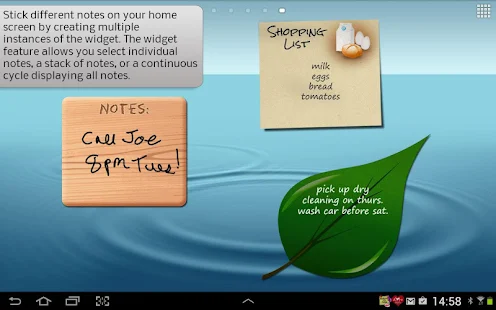 Stick different notes on your home
screen by creating multiple
instances of the widget. The widget
feature allows you select individual
notes, a stack of notes, or a continuous
cycle displaying all notes.
SHOPPING
LIST
milk
eggs
bread
tomatoes
NOTES:
Call Joe
8pm Tues!
pick up dry
cleaning on thurs.
wash car before sat.
14:58